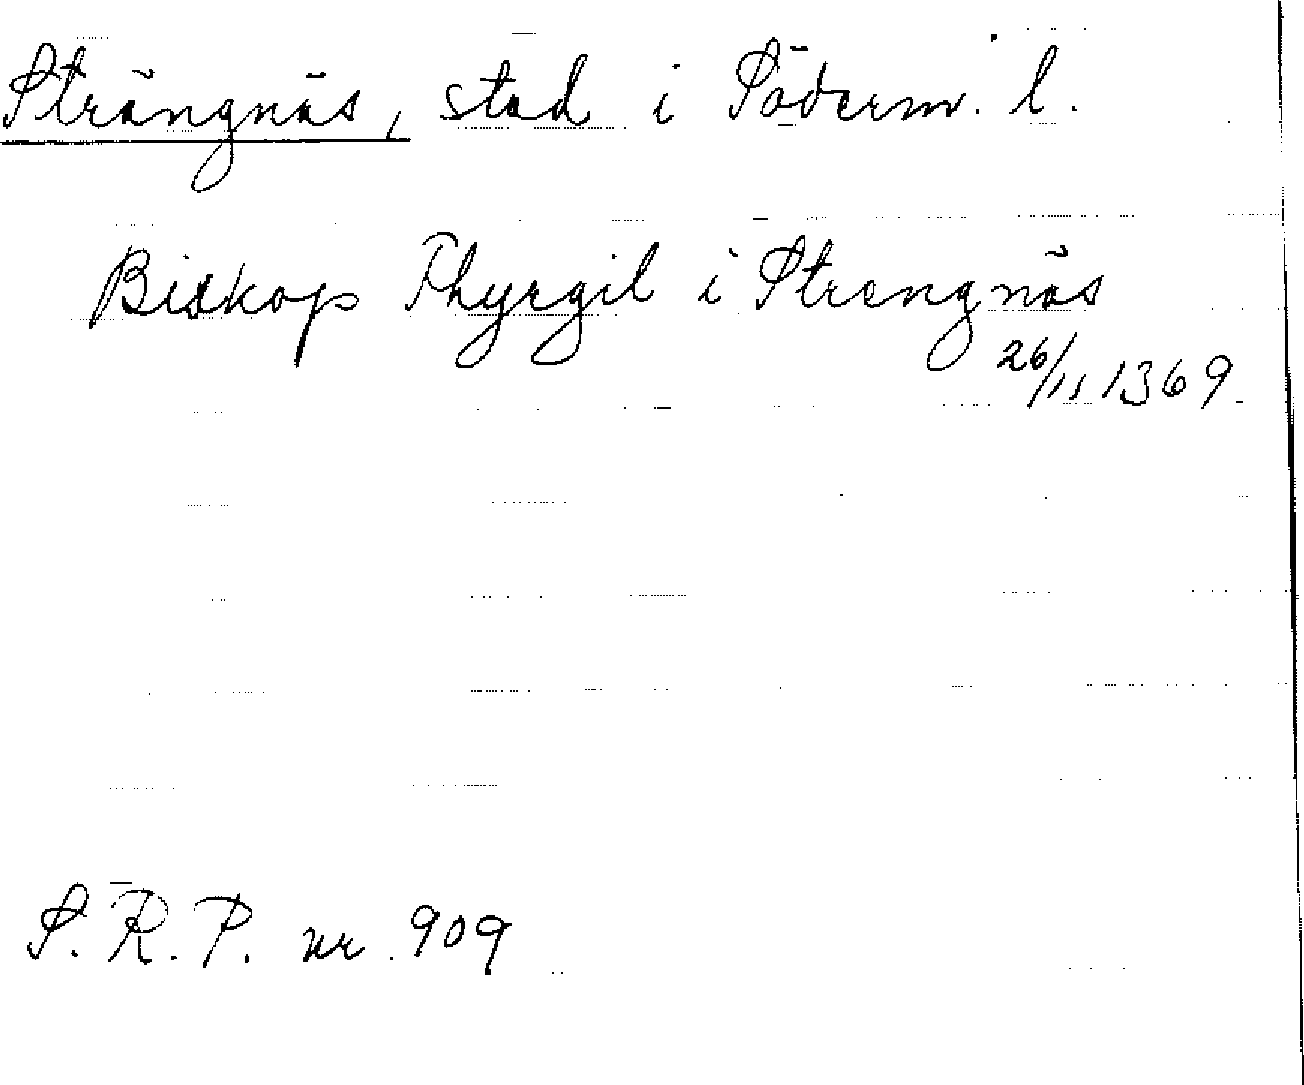 Strängnäs, stad i Söderm. l.
Biskop Thyrgil i Strengnäs
26/11 1369.
S. R. P. nr. 909